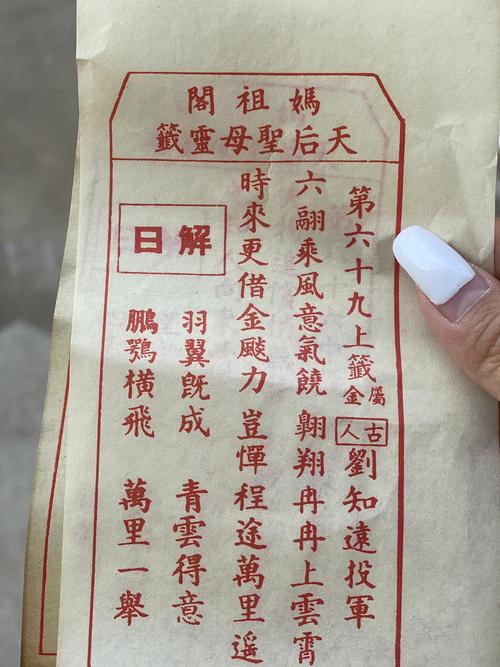 媽祖閣
天后聖母靈籤
第六十九上籤 屬金 古人 劉知遠投軍
六翮乘風意氣饒 翺翔冉冉上雲霄
時來更借金飈力 豈憚程途萬里遥
解曰
羽翼既成 青雲得意
鵬鶚橫飛 萬里一舉